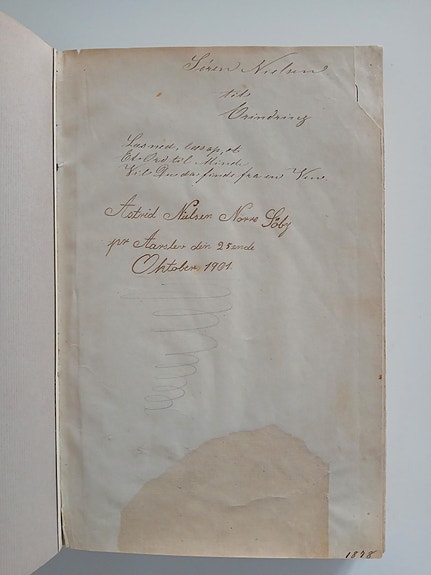 Søren Nielsen
til
Erindring
Læs ned, læs op, et
Et Ord til Minde
Vil Du da finde fra en Ven
Astrid Nielsen Nørre Søby
pr Aarslev den 25ende
Oktober 1901.
1878